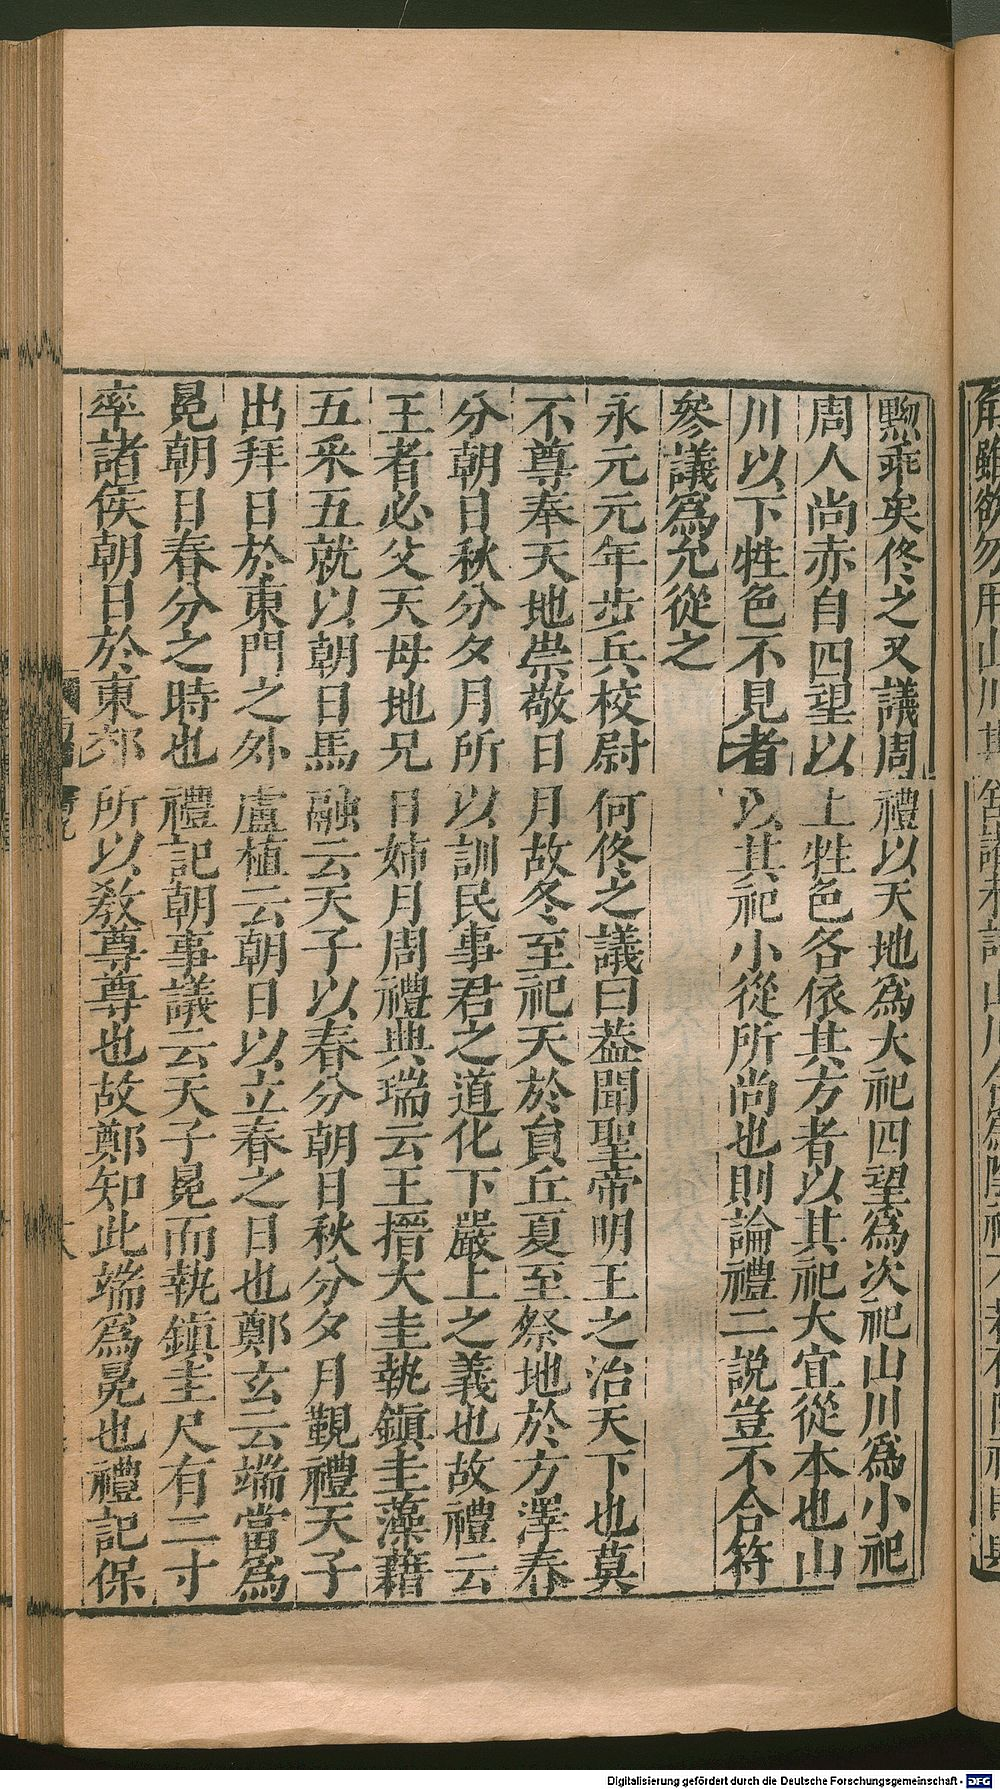 黝乖矣佟之又議周禮以天地爲大祀四望爲次祀山川爲小祀
周人尚赤自四望以上牲色各依其方者以其祀大宜從本也山
川以下牲色不見者以其祀小從所尚也則論禮二說豈不合符
參議爲允從之
永元元年步兵校尉何佟之議曰葢聞聖帝明王之治天下也莫
不尊奉天地崇敬日月故冬至祀天於負丘夏至祭地於方澤春
分朝日秋分夕月所以訓民事君之道化下嚴上之義也故禮云
王者必父天母地兄日姊月周禮典瑞云王搢大圭執鎮圭藻藉
五采五就以朝日馬融云天子以春分朝日秋分夕月覲禮天子
出拜日於東門之外盧植云朝日以立春之日也鄭玄云端當爲
冕朝日春分之時也禮記朝事議云天子冕而執鎮圭尺有二寸
率諸侯朝日於東郊所以教尊尊也故鄭知此端爲冕也禮記保
Digitalisierung gefördert durch die Deutsche Forschungsgemeinschaft - DFG